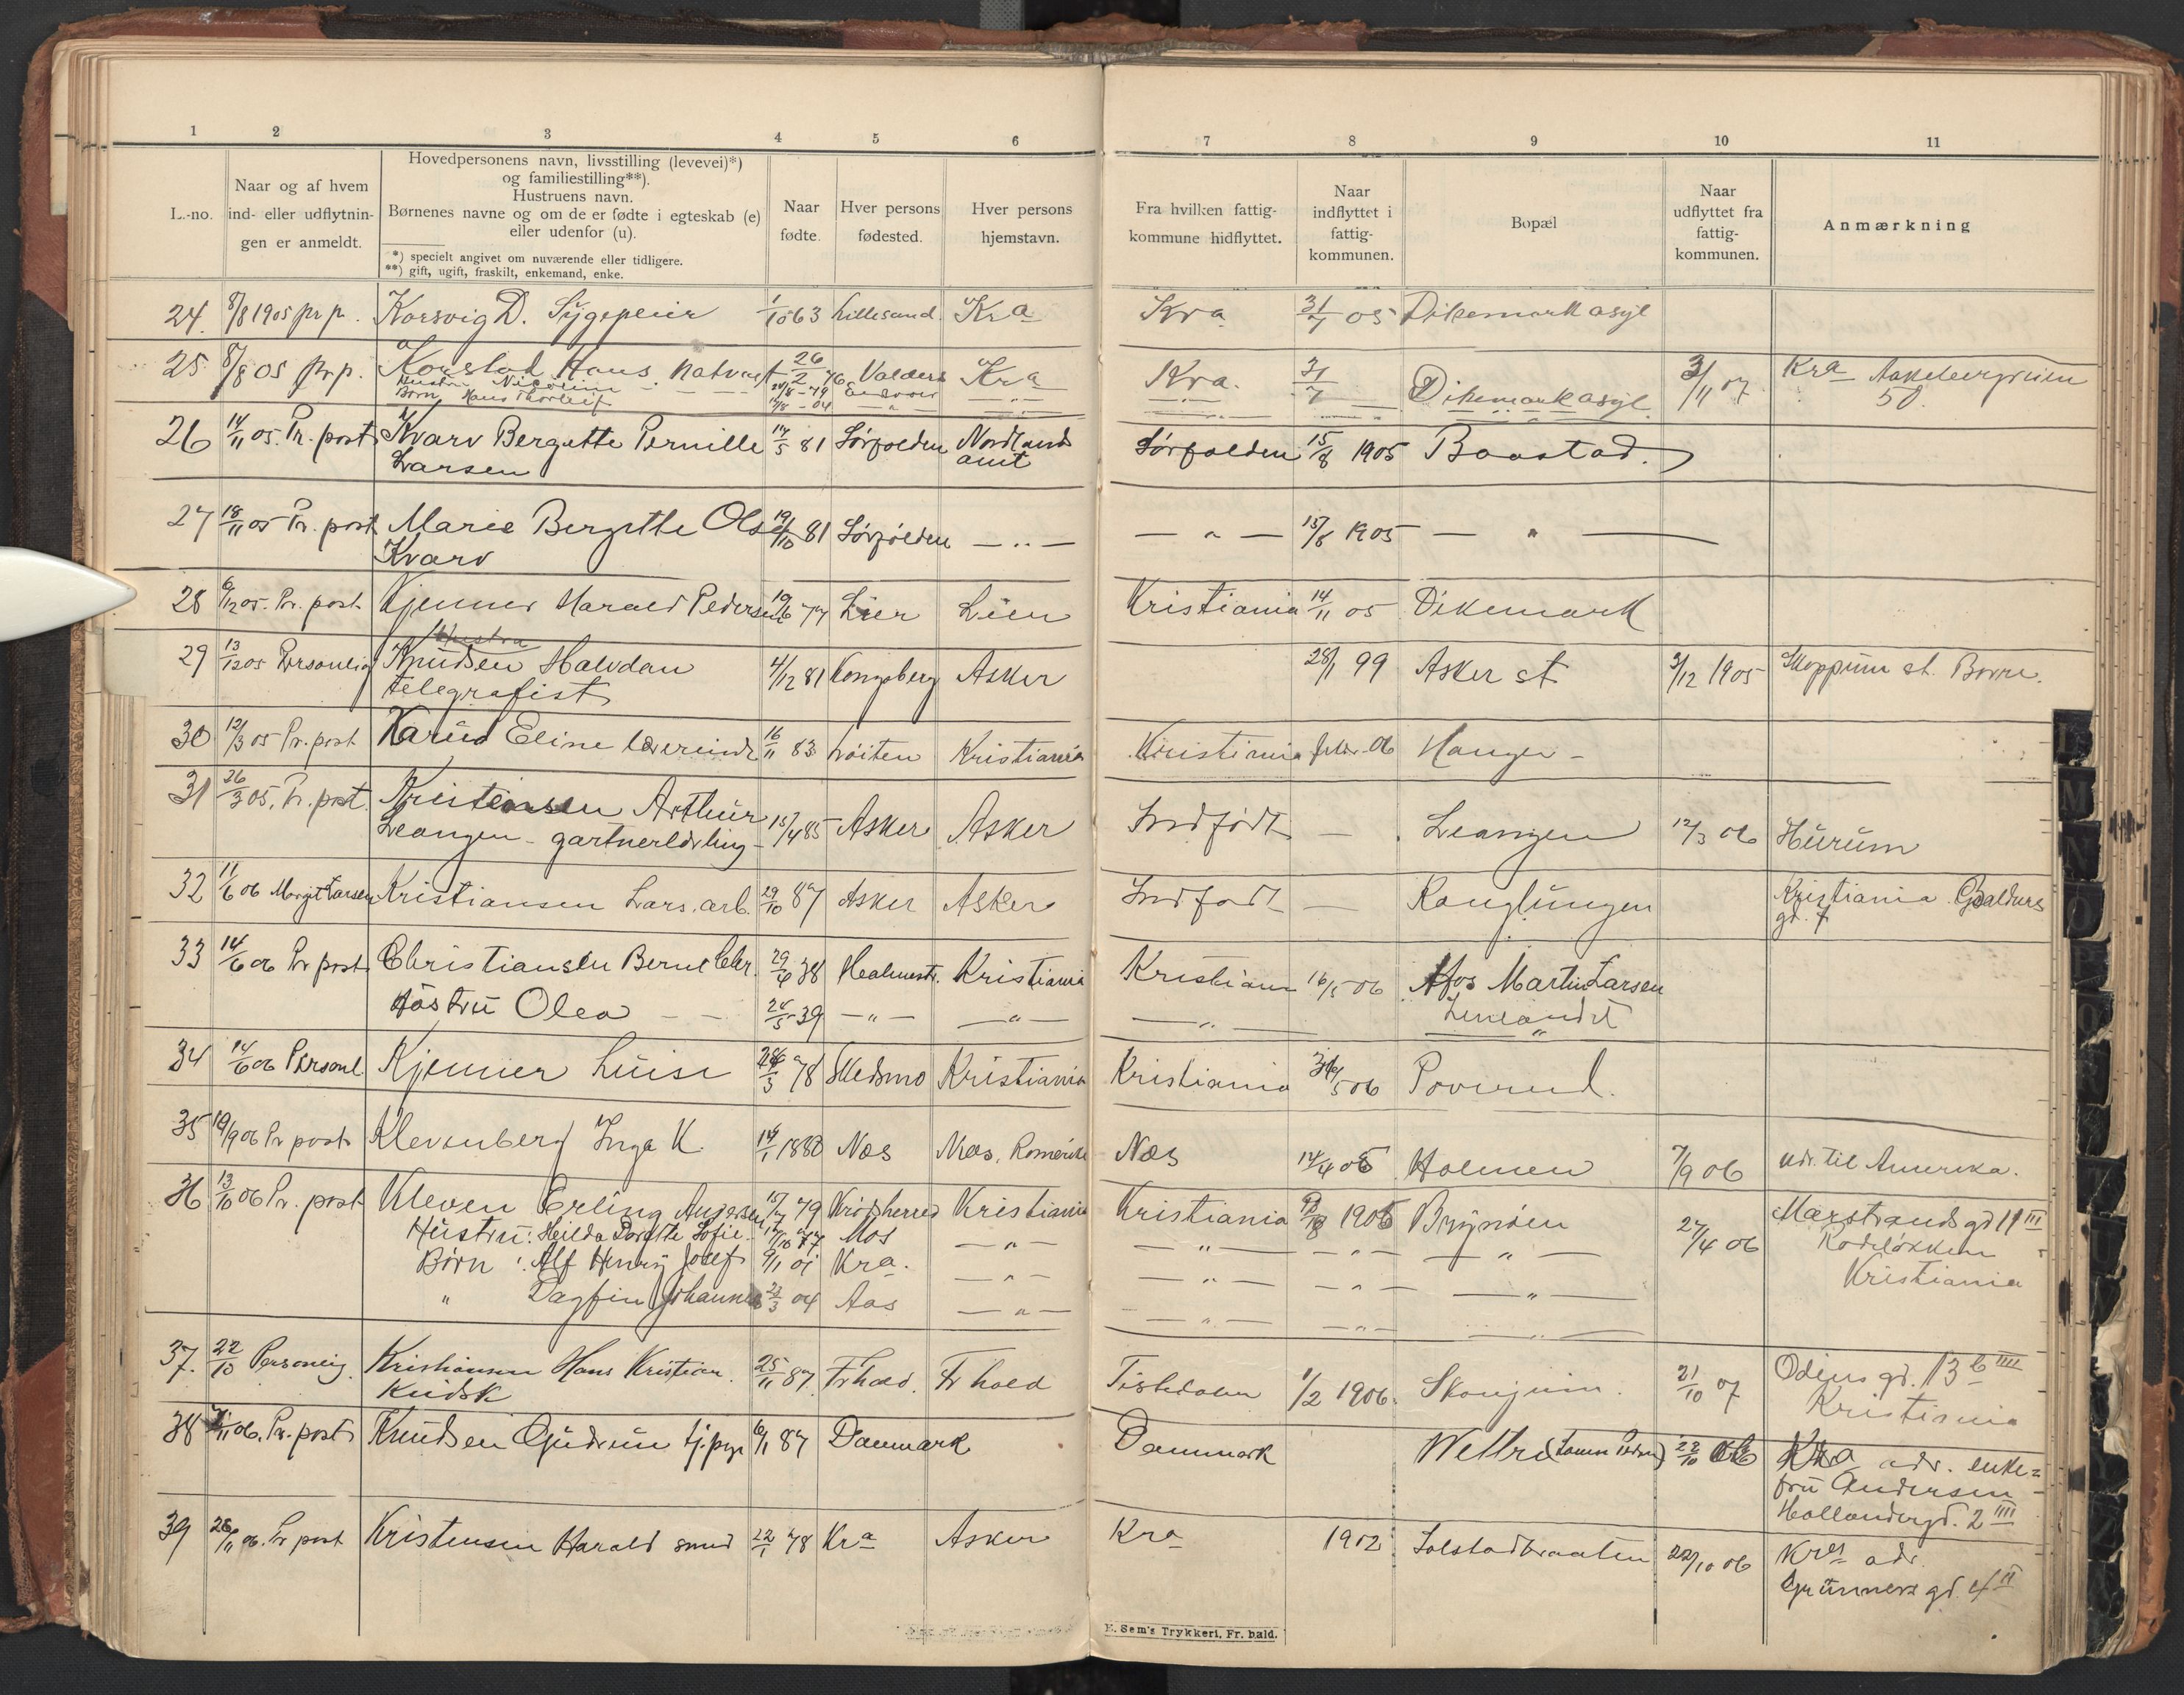 1 2 3 4 5 6 7 8 9 10 11
L.-no.
Naar og af hvem
ind- eller udflytnin-
gen er anmeldt.
Hovedpersonens navn, livsstilling (levevei)*)
og familiestilling**).
Hustruens navn.
Børnenes navne og om de er fødte i egteskab (e)
eller udenfor (u).
*) specielt angivet om nuværende eller tidligere.
**) gift, ugift, fraskilt, enkemand, enke.
Naar
fødte.
Hver persons
fødested.
Hver persons
hjemstavn.
Fra hvilken fattig-
kommune hidflyttet.
Naar
indflyttet i
fattig-
kommunen.
Bopæl
Naar
udflyttet fra
fattig-
kommunen.
Anmærkning
24. 8/8 1905 pr p. Korsvig D. Sygepleier 1/10 63 Lillesand Kra Kra 31/7 05 Dikemark asyl
25 8/8 05 pr p. Korstad Hans. Natvagt 26/2 76 Valders Kra Kra. 31/7 Dikemark asyl 3/11 07 Kra Aakebergveien
Hustru 24/8 - 79 — " — 50
Børn Hans Thorleif 12/8 - 04 — " —
26 14/11 05. Pr. post Kvarv Bergitte Pernille 14/5 81 Sørfolden Nordlands Sørfolden 15/8 1905 Baastad.
Larsen amt
27 18/11 05 Pr. post Marie Bergitte Olsen 19/10 81 Sørfolden — " — — " — 15/8 1905 — " —
Kvarv
28 6/12 05. Pr. post Kjenner Harald Pedersen 19/6 77 Lier Lier Kristiania 14/11 05 Dikemark
Hustru
29 13/12 05 Personlig Knudsen Halvdan 4/12 81 Kongsberg Asker 28/1 99 Asker st 3/12 1905 Skoppum st. Borre.
telegrafist
30 12/3 05 Pr. post Karud Eline lærerinde 16/11 83 Løiten Kristiania Kristiania febr. 06 Hauger -
31 26/3 05. Pr. post Kristensen Arthur
Leangen - gartnerlærling - 15/4 85 Asker Asker Indfødt — Leangen 12/3 06 Hurum
32 11/6 06 Margit Larsen Kristiansen Lars. arb. 29/10 87 Asker Asker Indfødt — Konglungen Kristiania Baldurs
gd. 7
33 14/6 06 Pr post Christiansen Bernt Chr. 29/6 38 Holmestr. Kristiania Kristiania 16/5 06 Hos Martin Larsen
Hustru Olea — — 24/5 39 — " — — " — — " —
34 14/6 06 Personl Kjenner Luise 24/3 78 Skedsmo Kristiania Kristiania 5 06 Poverud.
35 19/9 06 Pr post Klevenberg Inga K. 14/1 1880 Nes Næs, Romerike Næs 14/4 06 Holmen 7/9 06 udr. til Amerika.
36 13/10 06 Pr. post Kleven Erling Andersen 15/7 79 Krødsherred Kristiania Kristiania 1906 Brynøen 27/4 06 Marstrands gd 11 III
Hustru: Hilda Dorothe Sofie 17/10 77 Mos — " — — " — — " — — " — Rodeløkken
Børn : Alf Henry Josef 9/1 01 Kra. — " — — " — — " — — " — Kristiania
" Dagfin Johannes 23/3 04 Aas — " — — " — — " — — " —
37. 22/10 Personlig. Kristiansen Hans Kristian. 25/11 87 Fr hald. Fr hald Tistedalen 1/2 1906. Skaugum. 21/10 07 Odins gd. 13 b IIII
Kudsk Kristiania
38 11 06. Pr. post Knudsen Gudrun tj.pige 6/1 87 Danmark Danmark Wettre 22/10 06 Kra adr. enke=
fru Andersen
Hollændergd. 2 IIII
39 26/11 06. Pr post Kristensen Harald smed 22/1 78 Kra Asker Kra 1902 Solstadbraaten 22/10 06 Kra adr.
Grünners gd. 4 II
E. Sem's Trykkeri, Fr. hald.